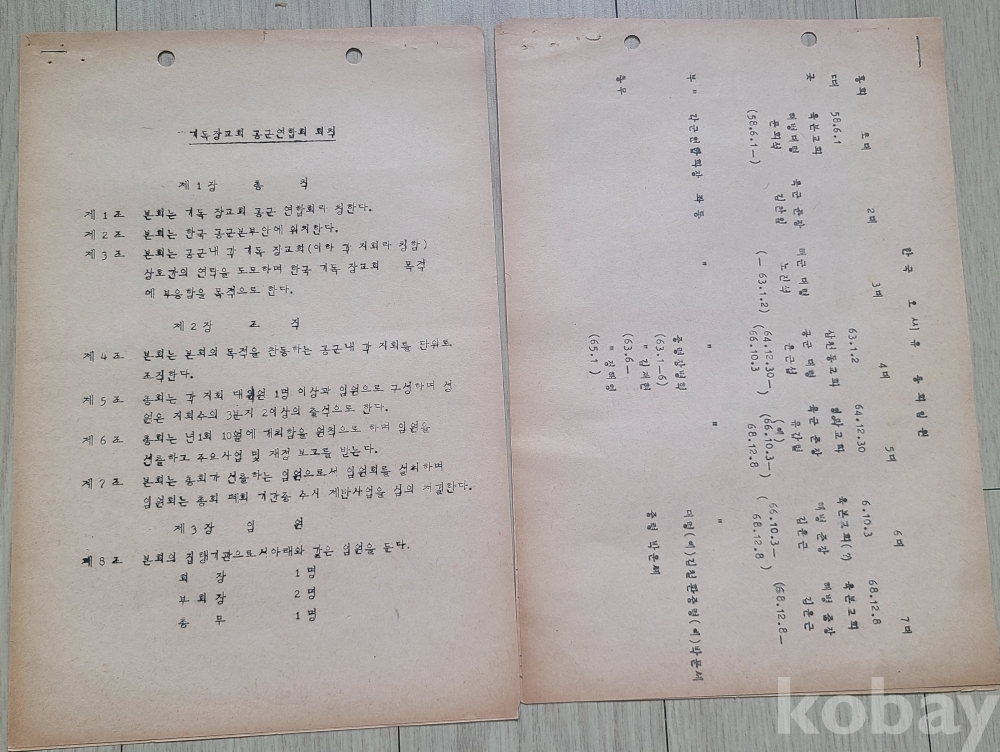 기독장교회 공군연합회 회칙
제1장 총 칙
제1조 본회는 기독 장교회 공군 연합회라 칭한다.
제2조 본회는 한국 공군본부안에 위치한다.
제3조 본회는 공군내 각 기독 장교회(이하 각 지회라 칭함)
상호간의 연락을 도모하며 한국 기독 장교회 목적
에 부응함을 목적으로 한다.
제2장 조 직
제4조 본회는 본회의 목적을 찬동하는 공군내 각 지회를 단위로
조직한다.
제5조 총회는 각 지회 대의원 1명 이상과 임원으로 구성하며 성
원은 지회수의 3분지 2이상의 출석으로 한다.
제6조 총회는 년1회 10월에 개회함을 원칙으로 하며 임원을
선출하고 주요사업 및 재정 보고를 받는다.
제7조 본회는 총회가 선출하는 임원으로서 임원회를 설치하며
임원회는 총회 폐회 기간중 수시 제반사업을 심의 처결한다.
제3장 임 원
제8조 본회의 집행기관으로서아래와 같은 임원을 둔다.
회 장 1명
부회장 2명
총 무 1명
한국 오 시 유 총회임원
초대 2대 3대 4대 5대 6대 7대
총회 때 58.6.1 63.1.2 64.12.30 6.10.3 68.12.8
곳 육본교회 삼천동교회 영락교회 육본교회(?) 육본교회
해병대령 육군 준장 해군 대령 공군 대령 육군 준장 해병 준장 해병 중장
문희석 김찬림 노진석 윤근섭 김윤근 김윤근
(58.6.1—) (— 63.1.2) 64.12.30—) (66.10.3—) 66.10.3— (68.12.8—
(66.10.3 68.12.8 68.12.8
부 " 각군연합회장 좌동 " " " 대령(예)김철환중령(예)박문세
총무 중령장병혁 중령 박문세
(63.1-6)
" 김제현
(63.6—
(65.1)
kobay